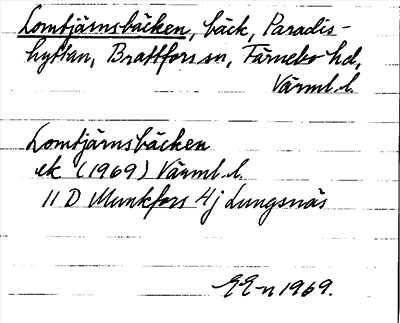 Lomtjärnsbäcken, bäck, Paradis-
hyttan, Brattfors sn, Färnebo hd,
Värml. l.
Lomtjärnsbäcken
ek (1969) Värml. l.
11 D Munkfors 4j Lungsnäs
EE-n 1969.